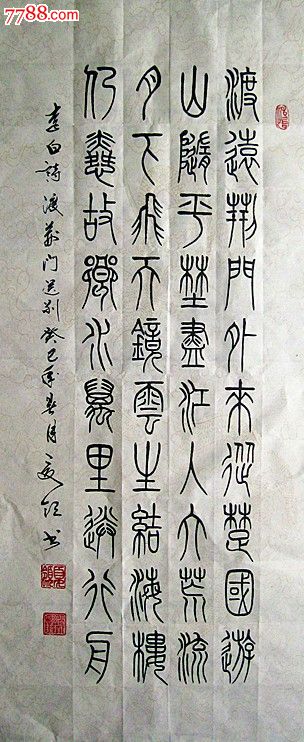 7788.com
渡遠荊門外來從楚國遊
山隨平埜盡江入大荒流
月下飛天鏡雲生結海樓
仍憐故鄉水萬里送行舟
李白詩渡荊门送别癸巳年春月书